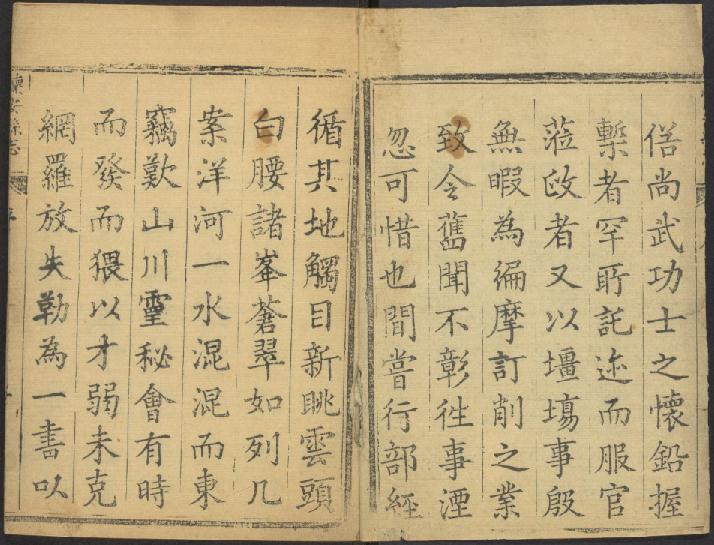 俗尚武功士之懷鉛握
槧者罕所託迹而服官
蒞政者又以壃塲事殷
無暇為編摩訂削之業
致令舊聞不彰徃事湮
忽可惜也間嘗行部經
循其地觸目新眺雲頭
白腰諸峯蒼翠如列几
案洋河一水混混而東
竊歎山川靈秘會有時
而發而猥以才弱未克
網羅放失勒為一書以